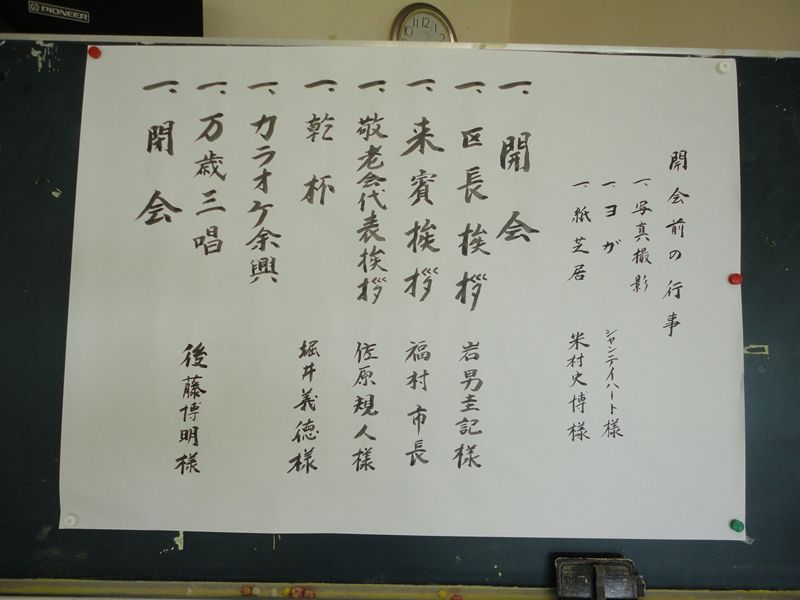 開会前の行事
一、写真撮影
一、ヨガ シャンテイハート様
一、紙芝居 米村史博様
一、開会
一、区長挨拶 岩男圭記様
一、来賓挨拶 福村市長
一、敬老会代表挨拶 佐原規人様
一、乾杯 堀井義徳様
一、カラオケ余興
一、万歳三唱 後藤博明様
一、閉会
PIONEER